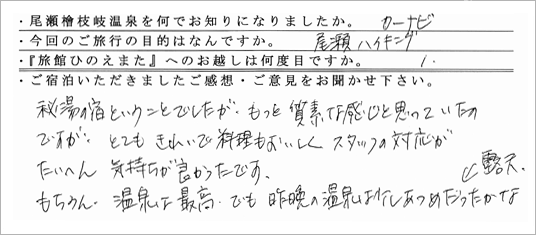 ・尾瀬檜枝岐温泉を何でお知りになりましたか。 カーナビ
・今回のご旅行の目的はなんですか。 尾瀬ハイキング
・『旅館ひのえまた』へのお越しは何度目ですか。 1.
・ご宿泊いただきましたご感想・ご意見をお聞かせ下さい。
秘湯の宿ということでしたが、もっと質素な感じと思っていたの
ですが、とてもきれいで料理もおいしく スタッフの対応が
たいへん 気持ちが良かったです。
露天。
もちろん、温泉は最高。でも 昨晩の温泉は少しあつめだったかな